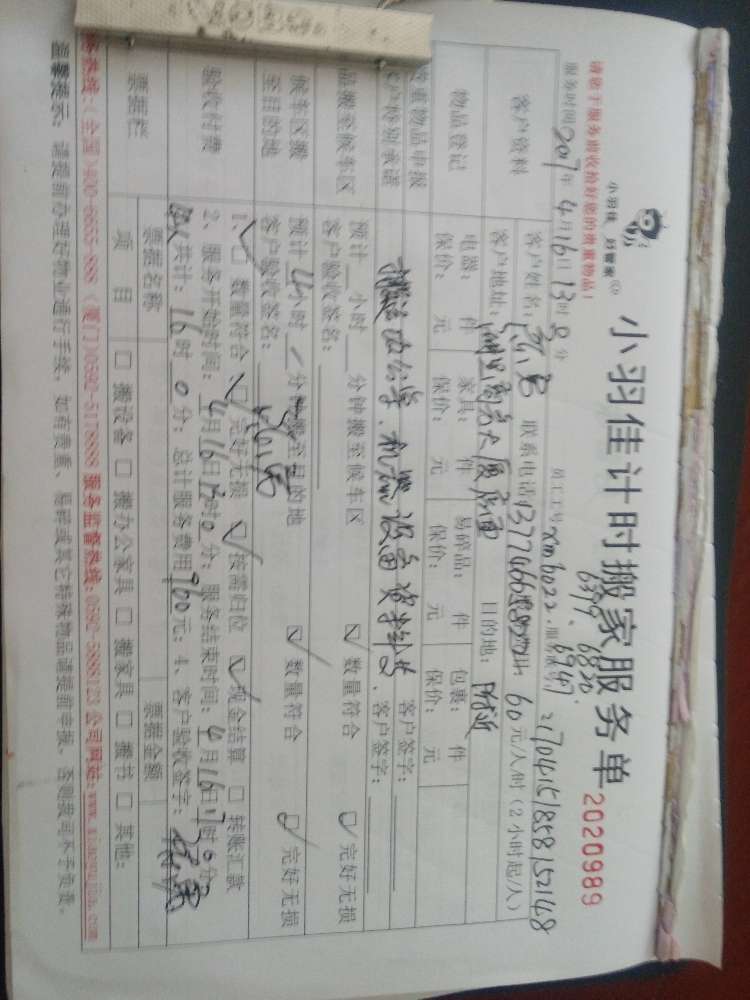 小羽佳 好管家
小羽佳计时搬家服务单 2020989
请您于服务前收拾好您的贵重物品！
6820
服务时间 2017年 4月16日 13时 0分 员工工号 xm6022. 6947
客户资料 客户姓名: 联系电话 60元/人/时（2小时起/人）
客户地址: 大厦店面 目的地: 附近
物品登记 电器: 件 家具: 件 易碎品: 件 包裹: 件
保价: 元 保价: 元 保价: 元 保价: 元
贵重物品申报 客户签字:
客户特别承诺 客户签字:
品搬至候车区 预计 小时 分钟搬至候车区 数量符合 完好无损
客户验收签名:
候车区搬至目的地 预计 4小时 分钟搬至目的地 数量符合 完好无损
客户验收签名:
验收付费 1、 数量符合 完好无损 按需归位 现金结算 转账汇款
2、服务开始时间: 4月16日13时0分; 服务结束时间: 4月16日17时0分
共计: 16时 0分; 总计服务费用 960元; 4、客户验收签字:
票据栏 票据名称 票据金额
项目 搬设备 搬办公家具 搬家具 搬书 其他:
务热线:(全国)400-6655-888 (厦门)0592-5178888 服务监督热线:0592-5888123 公司网站:www.xiaoyujia.com
温馨提示: 请提前办理好物业通行手续, 如有贵重、易碎或其它特殊物品请提前申报, 否则我司不予负责。